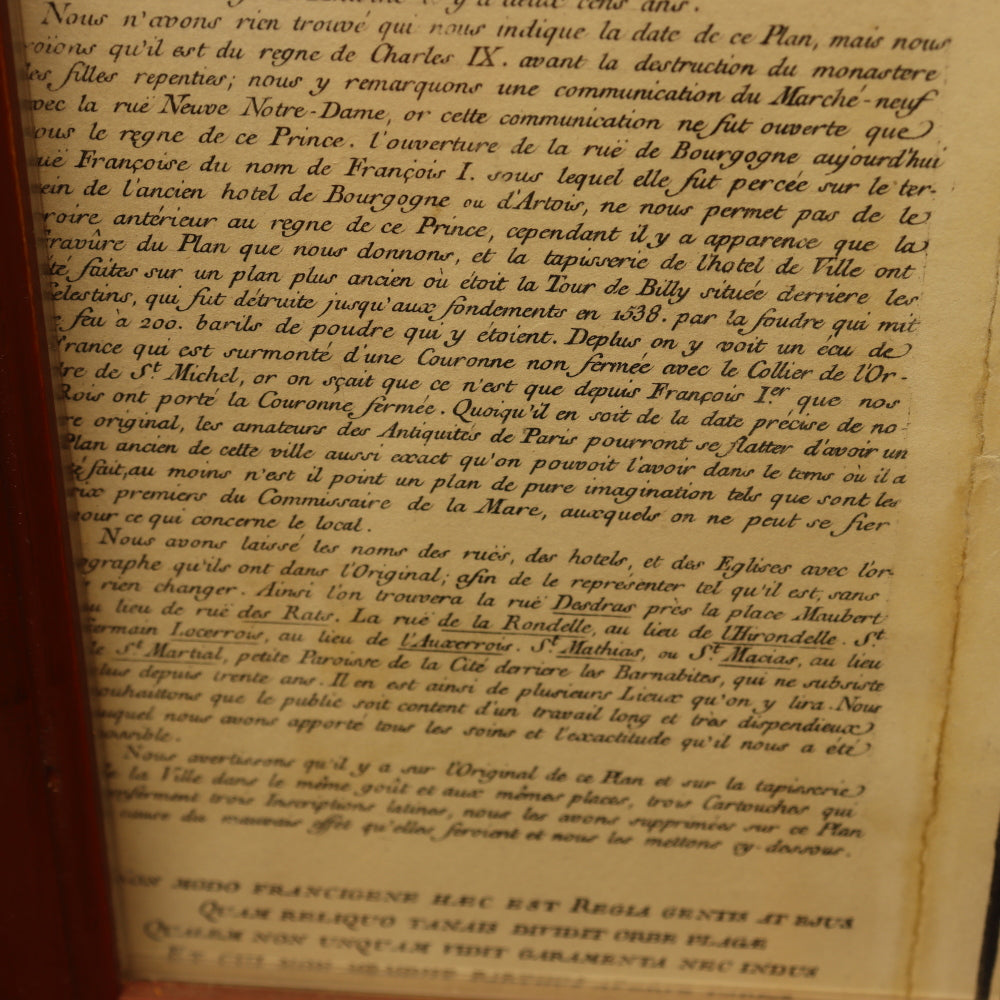 il y a deux cens ans.
Nous n'avons rien trouvé qui nous indique la date de ce Plan, mais nous
roïons qu'il est du regne de Charles IX. avant la destruction du monastere
les filles repenties; nous y remarquons une communication du Marché-neuf
avec la ruë Neuve Notre-Dame, or cette communication ne fut ouverte que
sous le regne de ce Prince. l'ouverture de la ruë de Bourgogne aujourd'hui
ruë Françoise du nom de François I. sous lequel elle fut percée sur le ter-
rein de l'ancien hotel de Bourgogne ou d'Artois, ne nous permet pas de le
croire antérieur au regne de ce Prince, cependant il y a apparence que la
Gravûre du Plan que nous donnons, et la tapisserie de l'hotel de Ville ont
été faites sur un plan plus ancien où étoit la Tour de Billy située derriere les
Celestins, qui fut détruite jusqu'aux fondements en 1538. par la foudre qui mit
le feu à 200. barils de poudre qui y étoient. Deplus on y voit un écu de
France qui est surmonté d'une Couronne non fermée avec le Collier de l'Or-
dre de St. Michel, or on sçait que ce n'est que depuis François I.er que nos
Rois ont porté la Couronne fermée. Quoiqu'il en soit de la date précise de no-
tre original, les amateurs des Antiquités de Paris pourront se flatter d'avoir un
Plan ancien de cette ville aussi exact qu'on pouvoit l'avoir dans le tems où il a
été fait, au moins n'est il point un plan de pure imagination tels que sont les
deux premiers du Commissaire de la Mare, auxquels on ne peut se fier
pour ce qui concerne le local.
Nous avons laissé les noms des ruës, des hotels, et des Eglises avec l'or-
tographe qu'ils ont dans l'Original; afin de le représenter tel qu'il est, sans
y rien changer. Ainsi l'on trouvera la ruë Desdras près la place Maubert
au lieu de ruë des Rats. La ruë de la Rondelle, au lieu de l'Hirondelle. St.
Germain Locerrois, au lieu de l'Auxerrois. St. Mathias, ou St. Macias, au lieu
de St. Martial, petite Paroisse de la Cité derriere les Barnabites, qui ne subsiste
plus depuis trente ans. Il en est ainsi de plusieurs Lieux qu'on y lira. Nous
souhaittons que le public soit content d'un travail long et très dispendieux
auquel nous avons apporté tous les soins et l'exactitude qu'il nous a été
possible.
Nous avertissons qu'il y a sur l'Original de ce Plan et sur la tapisserie
de la Ville dans le même goût et aux mêmes places, trois Cartouches qui
renferment trois Inscriptions latines, nous les avons supprimées sur ce Plan
à cause du mauvais effet qu'elles feroient et nous les mettons cy-dessous.
NON MODO FRANCIGENE HÆC EST REGIA GENTIS AT EJUS
QUAM RELIQUO TANAIS DIVIDIT ORBE PLAGÆ
QUALEM NON UNQUAM VIDIT GARAMENTA NEC INDUS
ET CUI NON